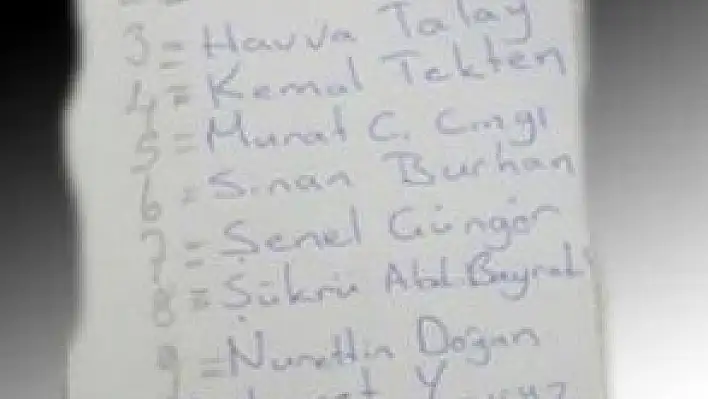 3 = Havva Talay
4 = Kemal Tekten
5 = Murat C. Cıngı
6 = Sinan Burhan
7 = Şenel Güngör
8 = Şükrü Bayrak
9 = Nurettin Doğan